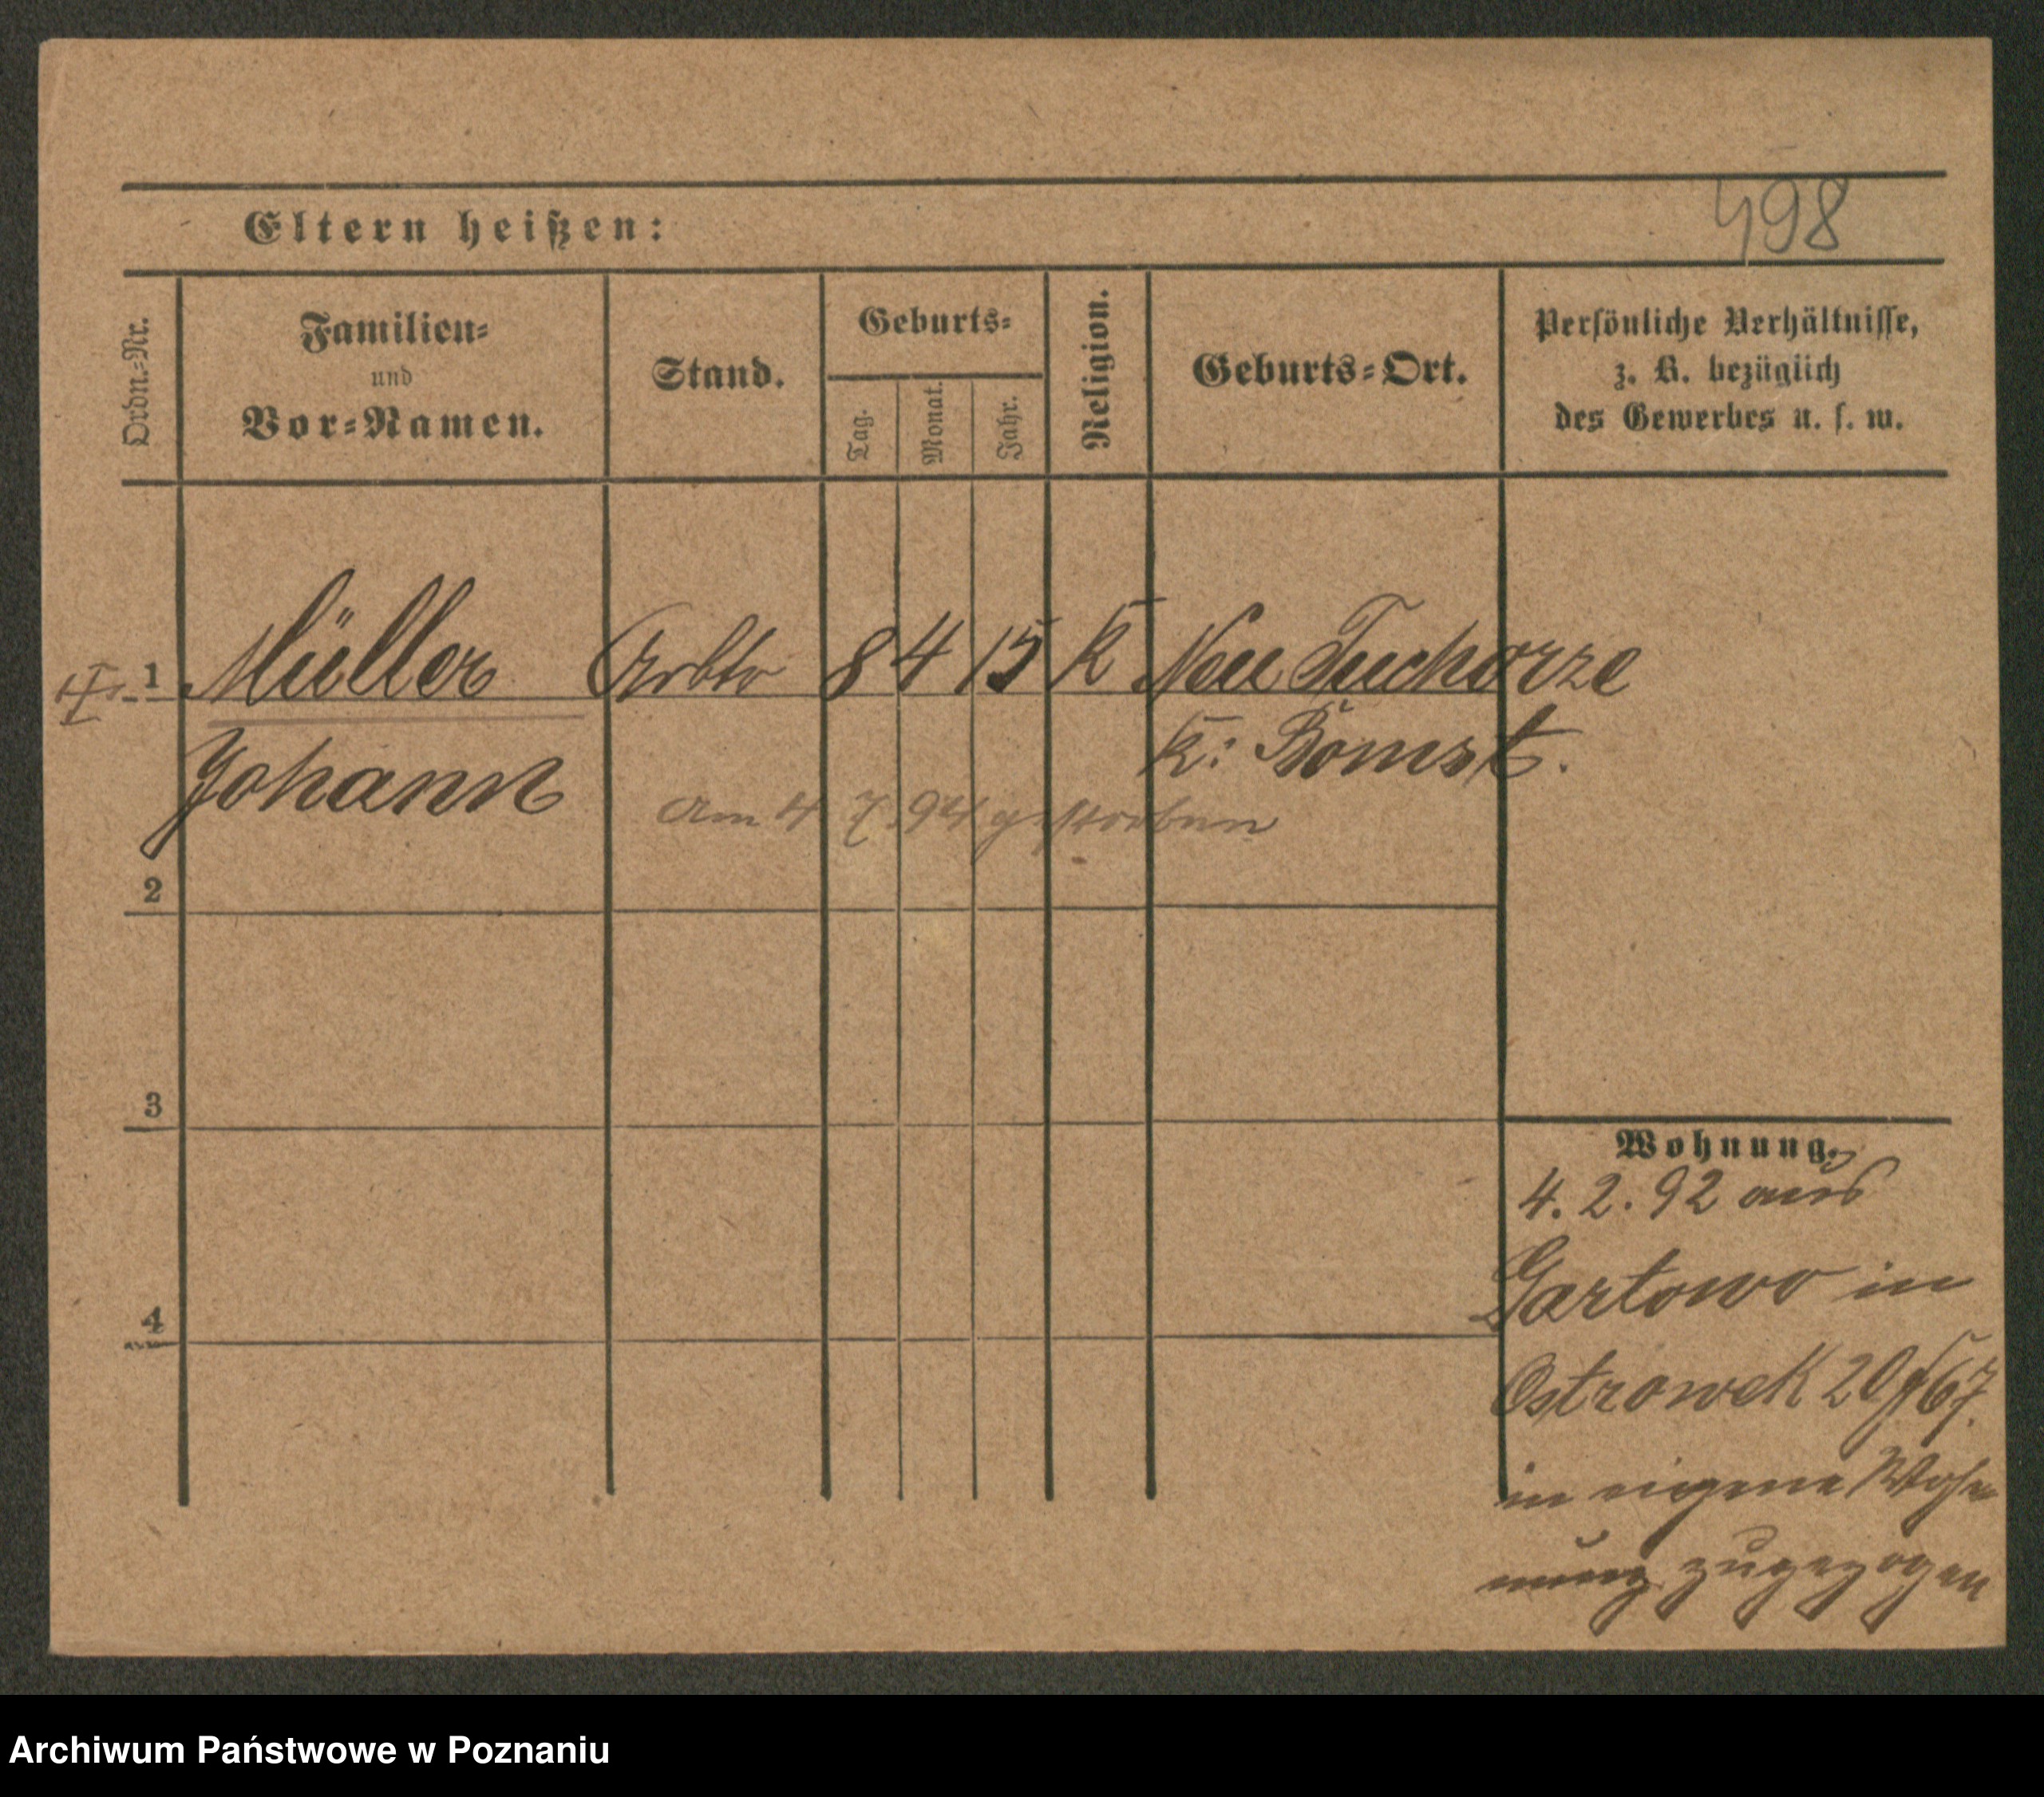 498
Eltern heißen:
Ordn.=Nr.
Familien=
und
Vor=Namen.
Stand.
Geburts=
Tag.
Monat.
Jahr.
Religion.
Geburts=Ort.
Persönliche Verhältnisse,
z. B. bezüglich
des Gewerbes u. s. w.
1 Müller Arbtr 8 4 15 K Neu Tuchorze
Johann K: Bomst.
am 4 7. 94 gestorben
2
3
4
Wohnung.
4. 2. 92 aus
Gartowo in
Ostrowek 20/67.
in eigene Woh
nung zugezogen
Archiwum Państwowe w Poznaniu